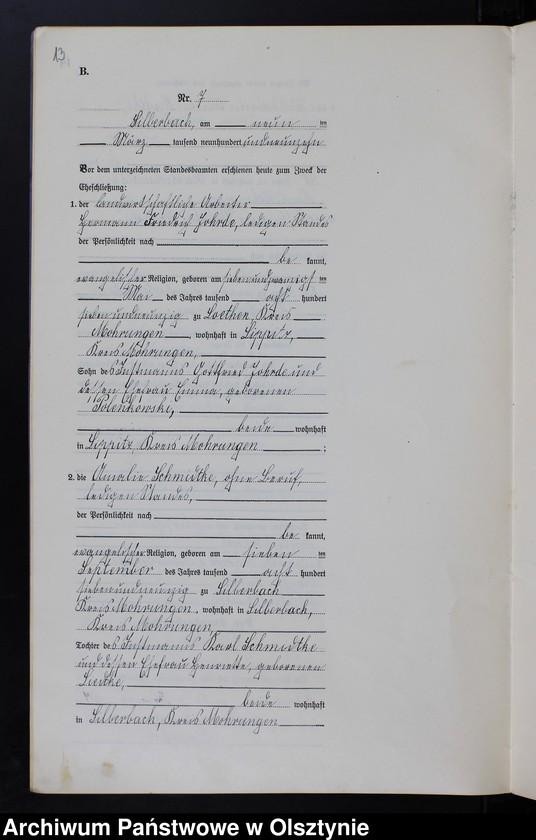 13
B.
Nr. 7
Silberbach, am neun ten
März tausend neunhundert undneunzehn
Vor dem unterzeichneten Standesbeamten erschienen heute zum Zweck der
Eheschließung:
1. der landwirtschaftliche Arbeiter
Hermann Friedrich Johrde, ledigen Standes
der Persönlichkeit nach
be kannt,
evangelischer Religion, geboren am siebenundzwanzigs ten
Mai des Jahres tausend acht hundert
siebenundneunzig zu Goethen, Kreis
Mohrungen, wohnhaft in Sippitz,
Kreis Mohrungen,
Sohn des Instmanns Gottfried Johrde und
dessen Ehefrau Emma, geborenen
Polenkowski,
beide wohnhaft
in Sippitz, Kreis Mohrungen ;
2. die Amalie Schmidtke, ohne Beruf,
ledigen Standes,
der Persönlichkeit nach
be kannt,
evangelischer Religion, geboren am sieben ten
September des Jahres tausend acht hundert
siebenundneunzig zu Silberbach
Kreis Mohrungen, wohnhaft in Silberbach,
Kreis Mohrungen,
Tochter des Instmanns Karl Schmidtke
und dessen Ehefrau Henriette, geborenen
beide wohnhaft
in Silberbach, Kreis Mohrungen
Archiwum Państwowe w Olsztynie